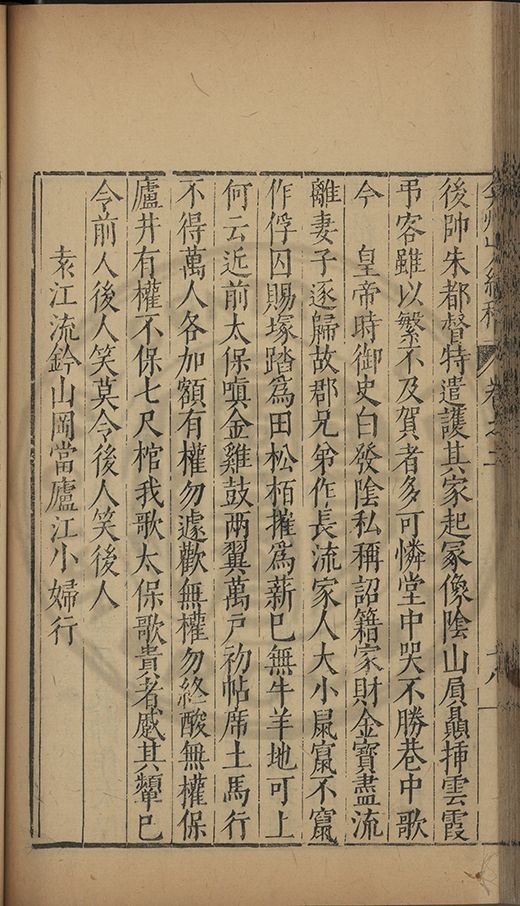 後帥朱都督特遣護其家起冢像陰山屓贔揷雲霞
弔客雖以繁不及賀者多可憐堂中哭不勝巷中歌
今　皇帝時御史白發陰私稱詔籍家財金寶盡流
離妻子逐歸故郡兄弟作長流家人大小鼠竄不竄
作俘囚賜塚踏爲田松栢摧爲薪巳無牛羊地可上
何云近前太保嗔金雞鼓兩翼萬戸初帖席土馬行
不得萬人各加額有權勿遽歡無權勿終酸無權保
廬井有權不保七尺棺我歌太保歌貴者慼其顰巳
令前人後人笑莫令後人笑後人
袁江流鈐山岡當廬江小婦行